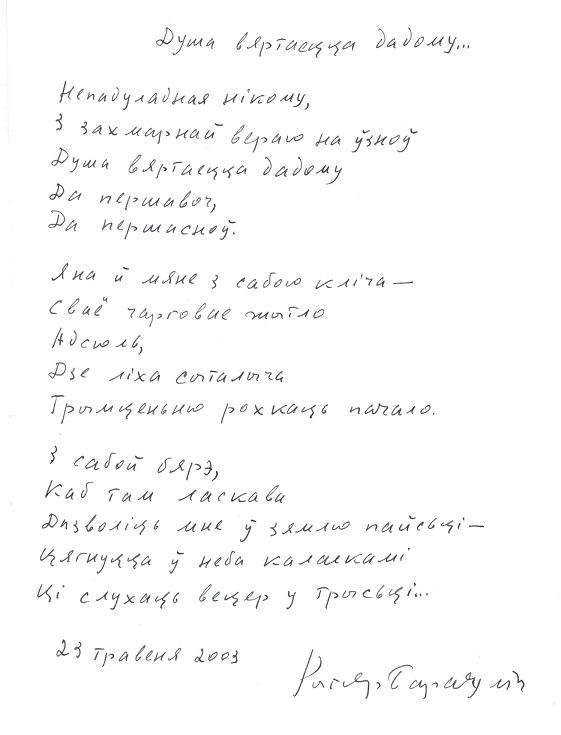 Душа вяртаецца дадому...
Непадуладная нікому,
З захмарнай вераю на ўзноў
Душа вяртаецца дадому
Да першавоч,
Да першасноў.
Яна й мяне з сабою кліча —
Сваё чарговае жытло
Адсюль,
Дзе ліха сыталыча
Трымценьню рохкаць пачало.
З сабой бярэ,
Каб там ласкава
Дазволіць мне ў зямлю пайсьці —
Цягнуцца ў неба каласкамі
Ці слухаць вецер у трысьці...
23 траўеня 2003
Рыгор Барадулін